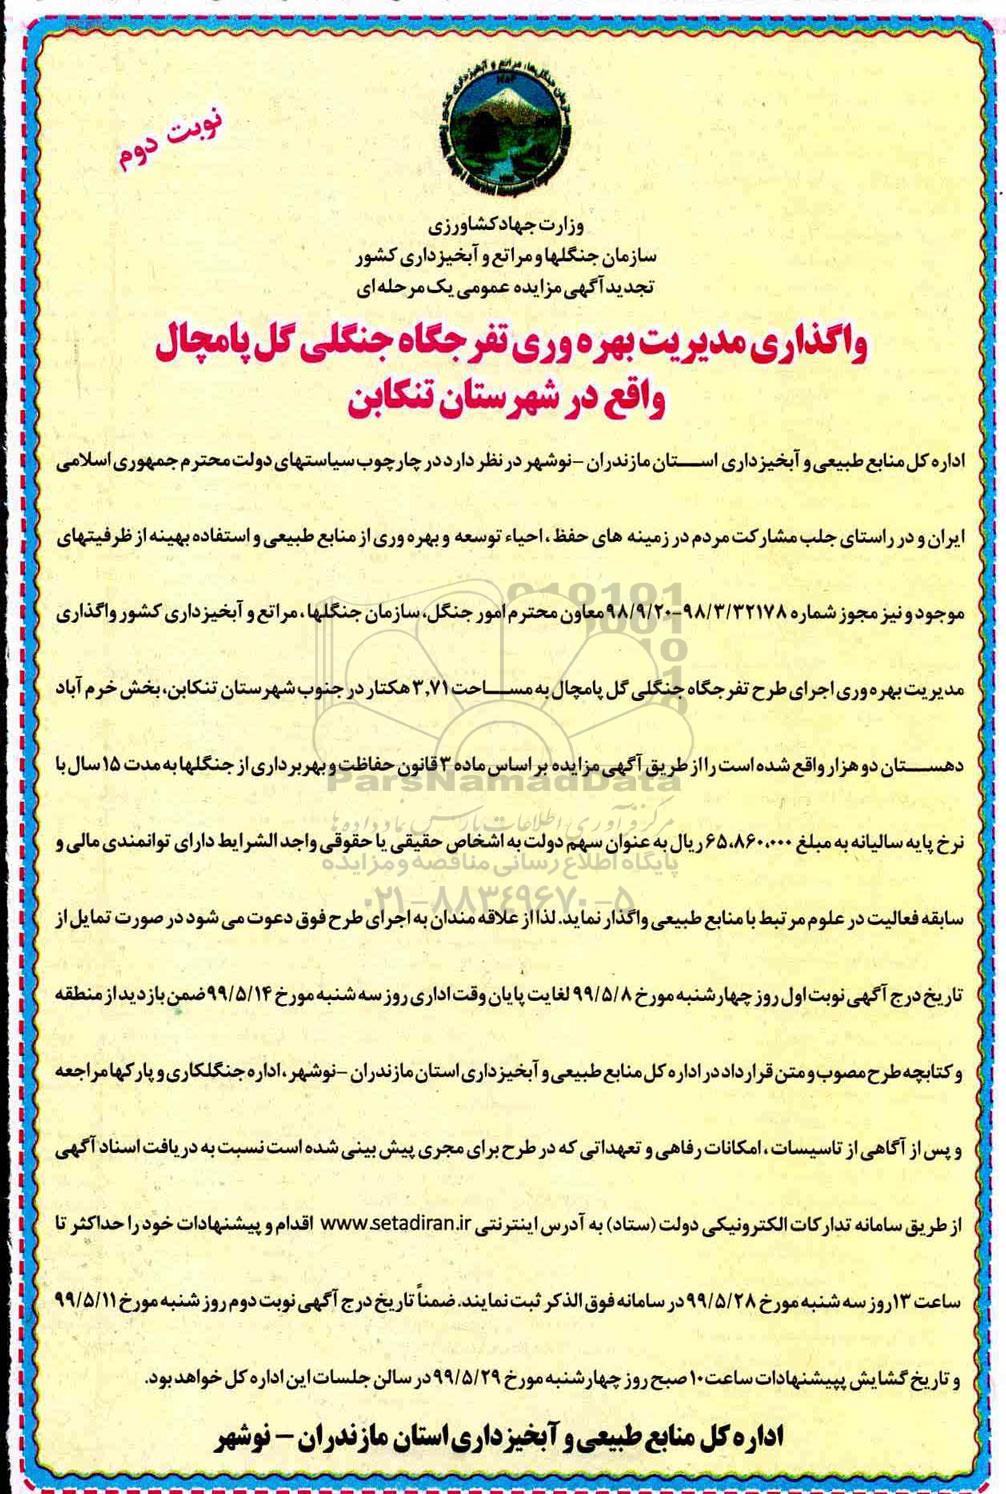 نوبت دوم
وزارت جهاد کشاورزی
سازمان جنگلها و مراتع و آبخیزداری کشور
تجدید آگهی مزایده عمومی یک مرحله ای
واگذاری مدیریت بهره وری تفرجگاه جنگلی گل پامچال
واقع در شهرستان تنکابن
اداره کل منابع طبیعی و آبخیزداری استان مازندران -نوشهر در نظر دارد در چارچوب سیاستهای دولت محترم جمهوری اسلامی
ایران و در راستای جلب مشارکت مردم در زمینه های حفظ، احیاء توسعه و بهره وری از منابع طبیعی و استفاده بهینه از ظرفیتهای
موجود و نیز مجوز شماره ۹۸/۳/۳۲۱۷۸-۹۸/۹/۲۰ معاون محترم امور جنگل، سازمان جنگلها، مراتع و آبخیزداری کشور واگذاری
مدیریت بهره وری اجرای طرح تفرجگاه جنگلی گل پامچال به مساحت ۳,۷۱ هکتار در جنوب شهرستان تنکابن، بخش خرم آباد
دهستان دو هزار واقع شده است را از طریق آگهی مزایده بر اساس ماده ۳ قانون حفاظت و بهربرداری از جنگلها به مدت ۱۵ سال با
نرخ پایه سالیانه به مبلغ ۶۵،۸۶۰،۰۰۰ ریال به عنوان سهم دولت به اشخاص حقیقی یا حقوقی واجد الشرایط دارای توانمندی مالی و
سابقه فعالیت در علوم مرتبط با منابع طبیعی واگذار نماید. لذا از علاقه مندان به اجرای طرح فوق دعوت می شود در صورت تمایل از
تاریخ درج آگهی نوبت اول روز چهارشنبه مورخ ۹۹/۵/۸ لغایت پایان وقت اداری روز سه شنبه مورخ ۹۹/۵/۱۴ ضمن بازدید از منطقه
و کتابچه طرح مصوب و متن قرارداد در اداره کل منابع طبیعی و آبخیزداری استان مازندران -نوشهر، اداره جنگلکاری و پارکها مراجعه
و پس از آگاهی از تاسیسات، امکانات رفاهی و تعهداتی که در طرح برای مجری پیش بینی شده است نسبت به دریافت اسناد آگهی
از طریق سامانه تدارکات الکترونیکی دولت (ستاد) به آدرس اینترنتی www.setadiran.ir اقدام و پیشنهادات خود را حداکثر تا
ساعت ۱۳ روز سه شنبه مورخ ۹۹/۵/۲۸ در سامانه فوق الذکر ثبت نمایند. ضمناً تاریخ درج آگهی نوبت دوم روز شنبه مورخ ۹۹/۵/۱۱
و تاریخ گشایش پیشنهادات ساعت ۱۰ صبح روز چهارشنبه مورخ ۹۹/۵/۲۹ در سالن جلسات این اداره کل خواهد بود.
اداره کل منابع طبیعی و آبخیزداری استان مازندران - نوشهر
ParsNamadData
مرکز فرآوری اطلاعات پارس نماد داده ها
پایگاه اطلاع رسانی مناقصه و مزایده
۰۲۱-۸۸۳۴۹۶۷۰-۵